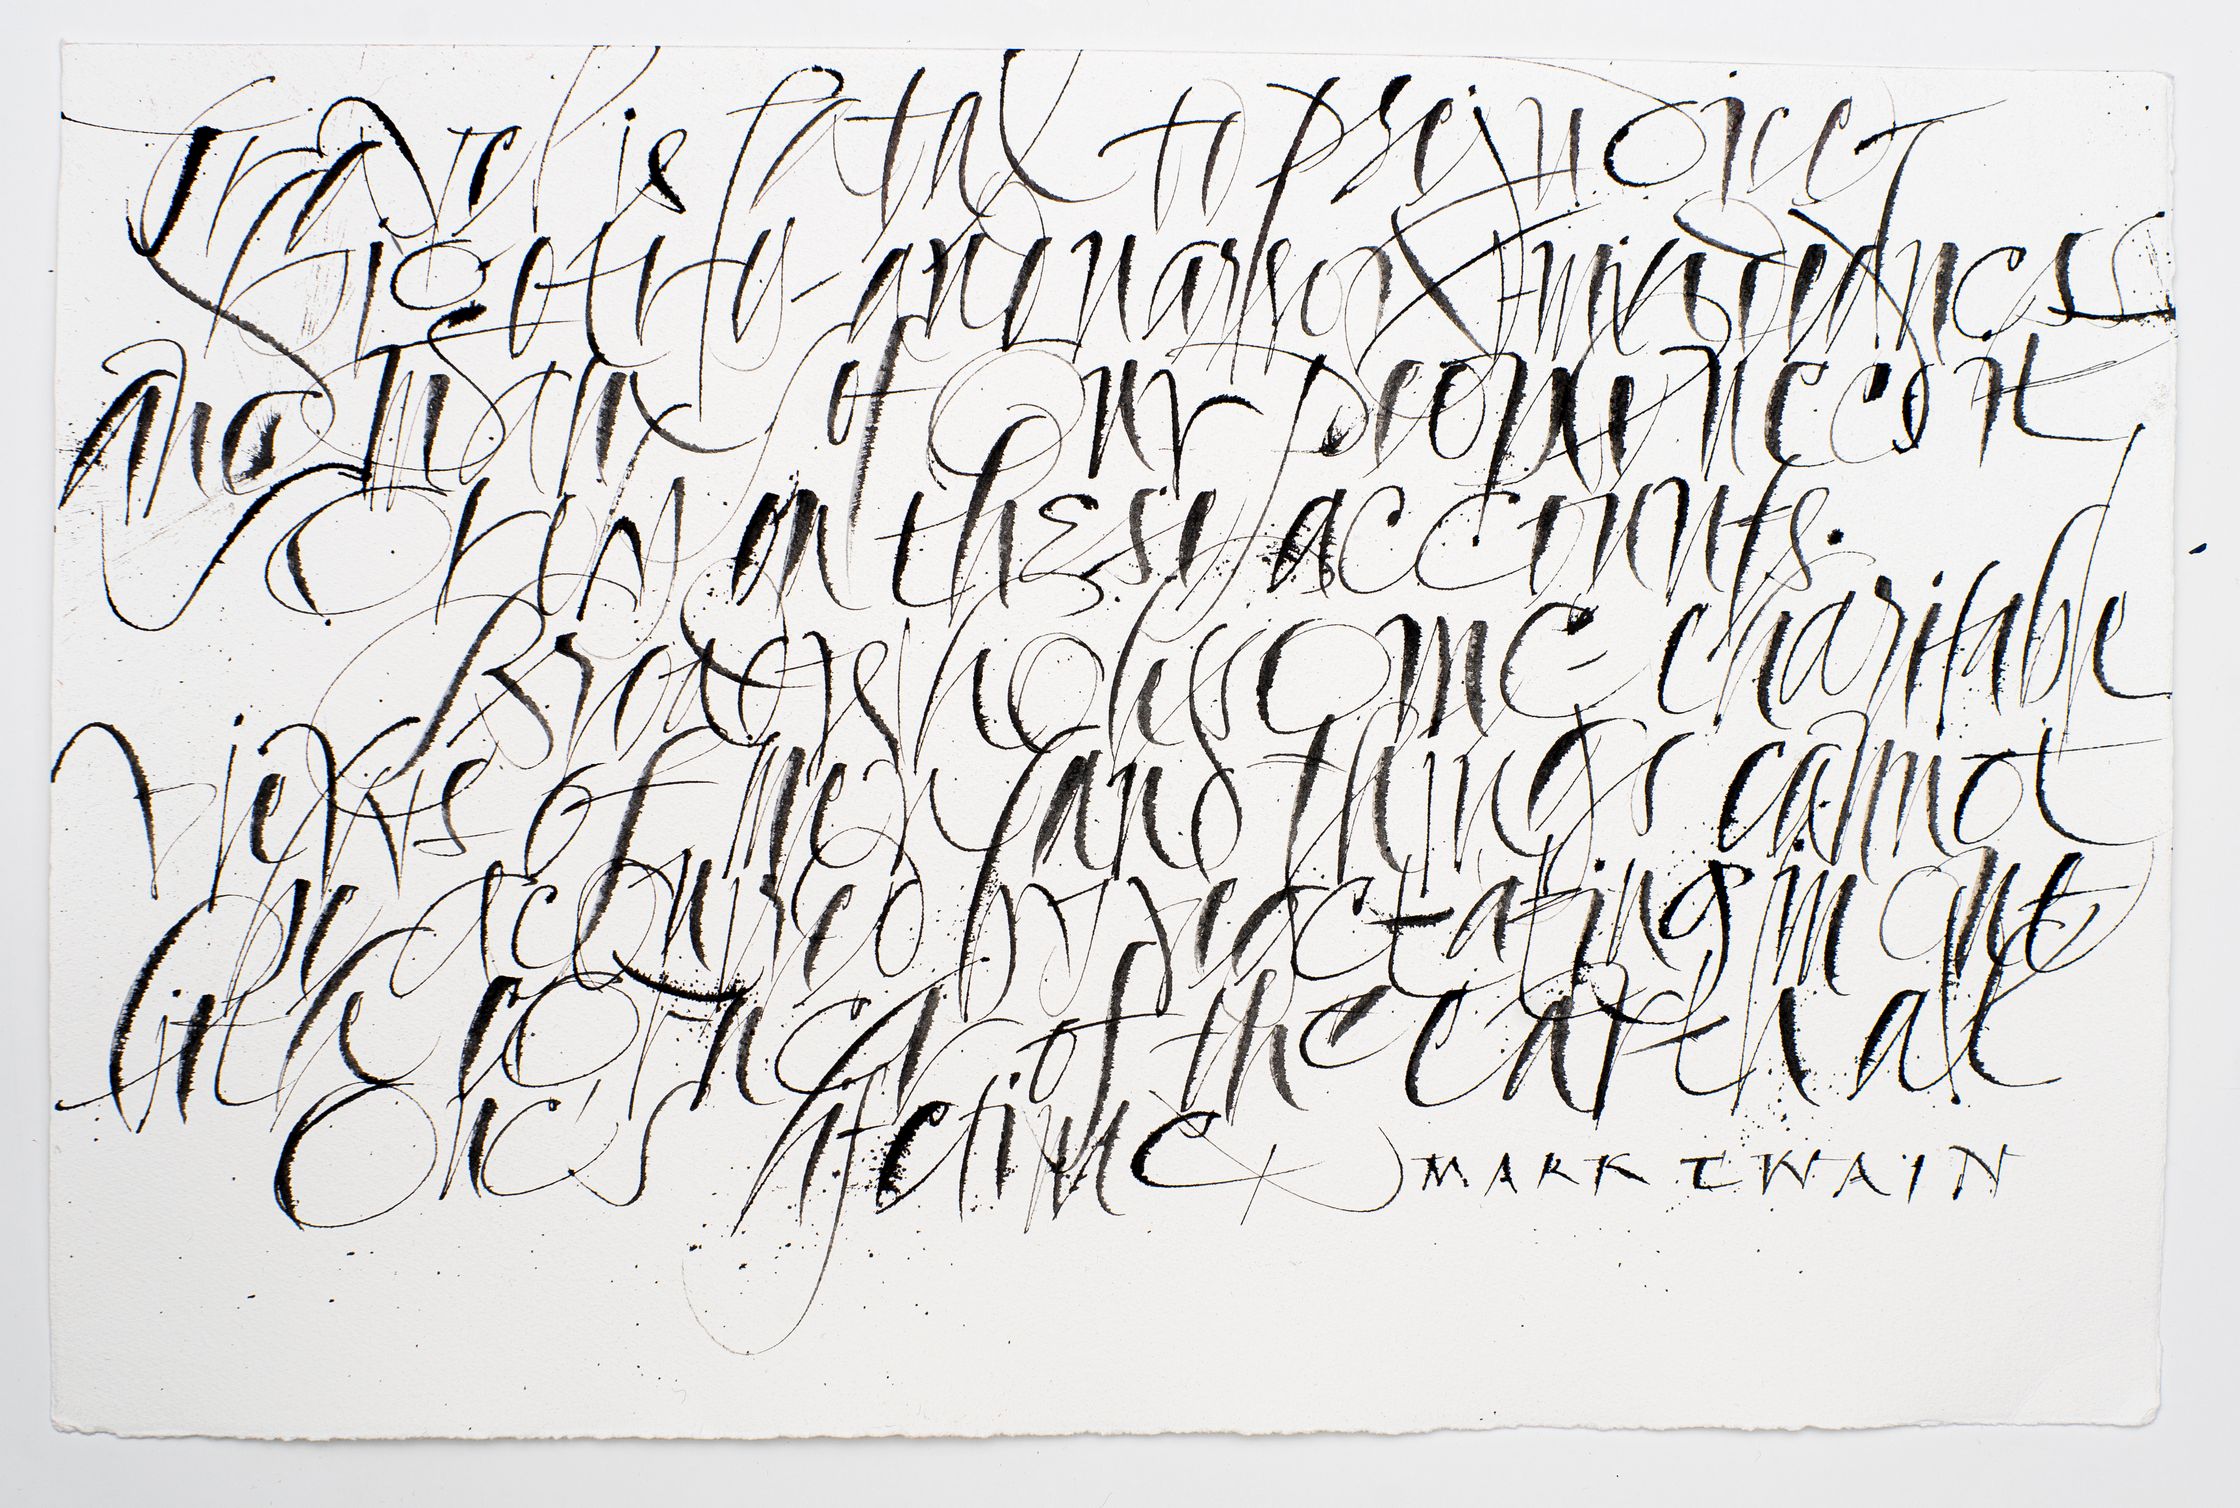 Travel is fatal to prejudice,
Bigotry - and narrowmindedness
and many of our people need it
sorely on these accounts.
Broad, wholesome - charitable
views of men and things cannot
be acquired by vegetating in one
little corner of the earth all
one's lifetime
MARK TWAIN